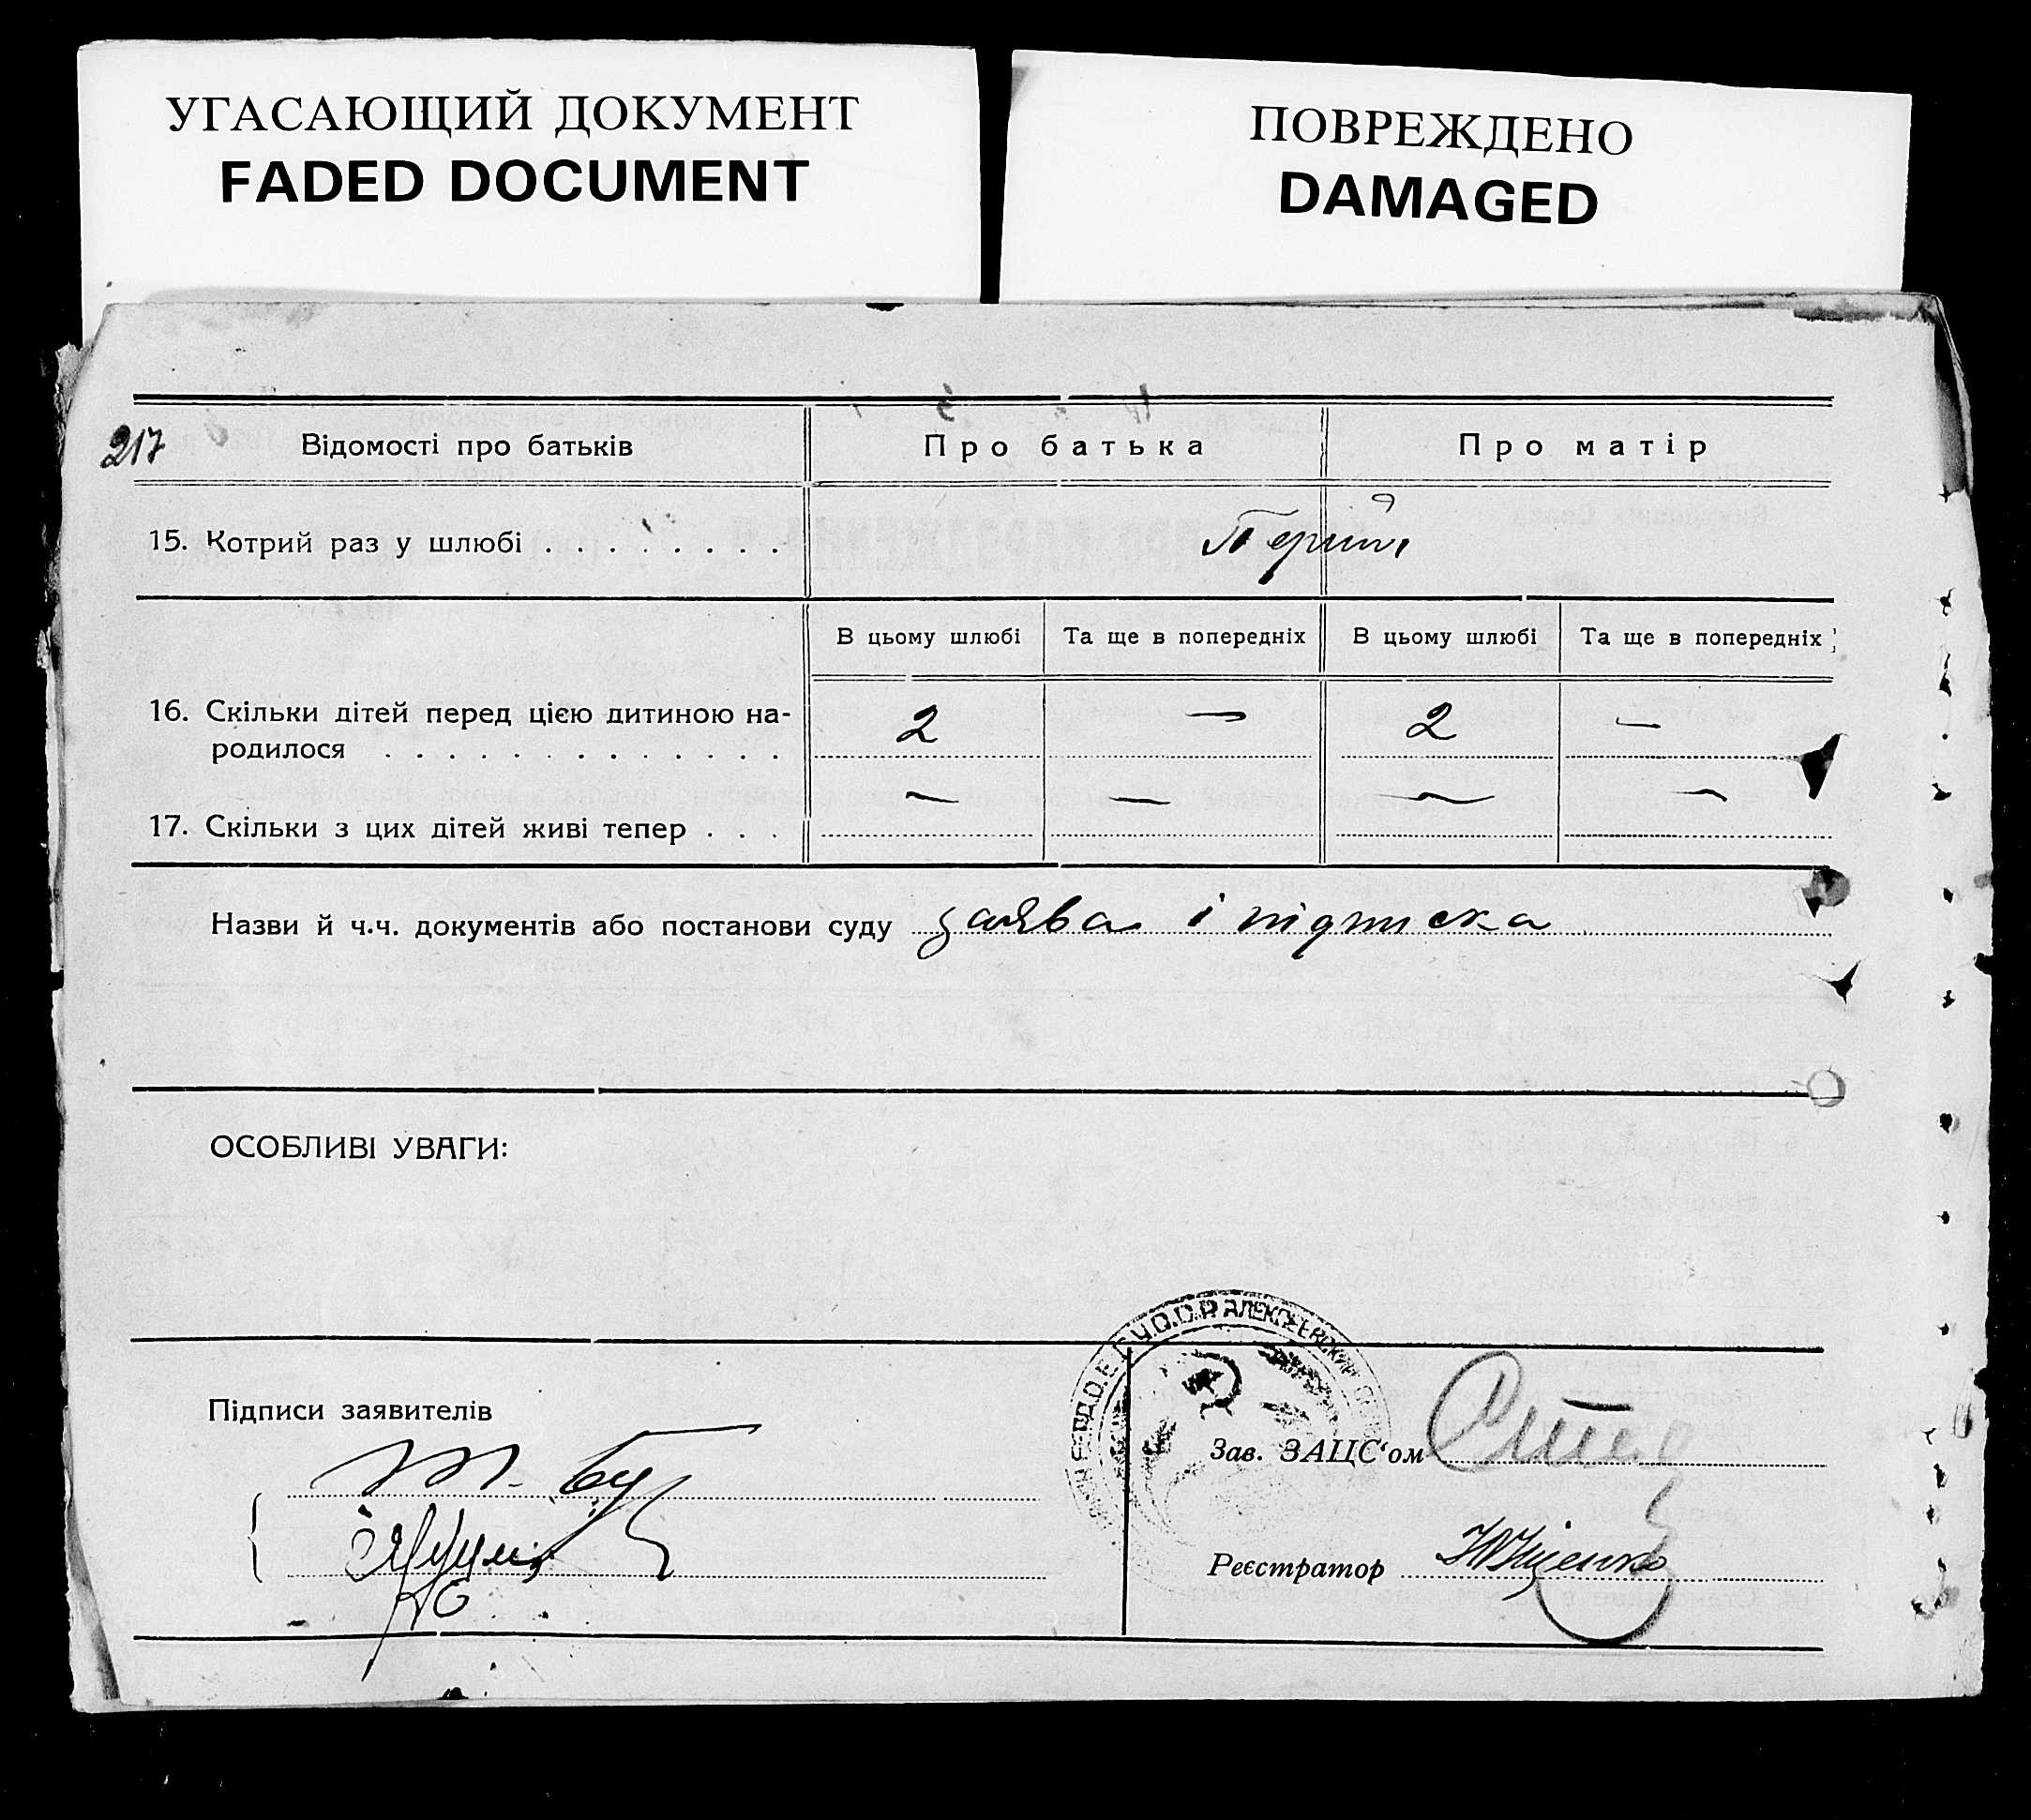 УГАСАЮЩИЙ ДОКУМЕНТ
FADED DOCUMENT
ПОВРЕЖДЕНО
DAMAGED
217
Відомості про батьків
Про батька
Про матір
15. Котрий раз у шлюбі . . . . . . . .
В цьому шлюбі
Та ще в попередніх
В цьому шлюбі
Та ще в попередніх
16. Скільки дітей перед цією дитиною на-
родилося . . . . . . . . . . . . .
2 — 2 —
17. Скільки з цих дітей живі тепер . . .
— — — —
Назви й ч.ч. документів або постанови суду заява і підписка
ОСОБЛИВІ УВАГИ:
У.С.С.Р.
Підписи заявителів
Зав. ЗАЦС‘ом
Реєстратор